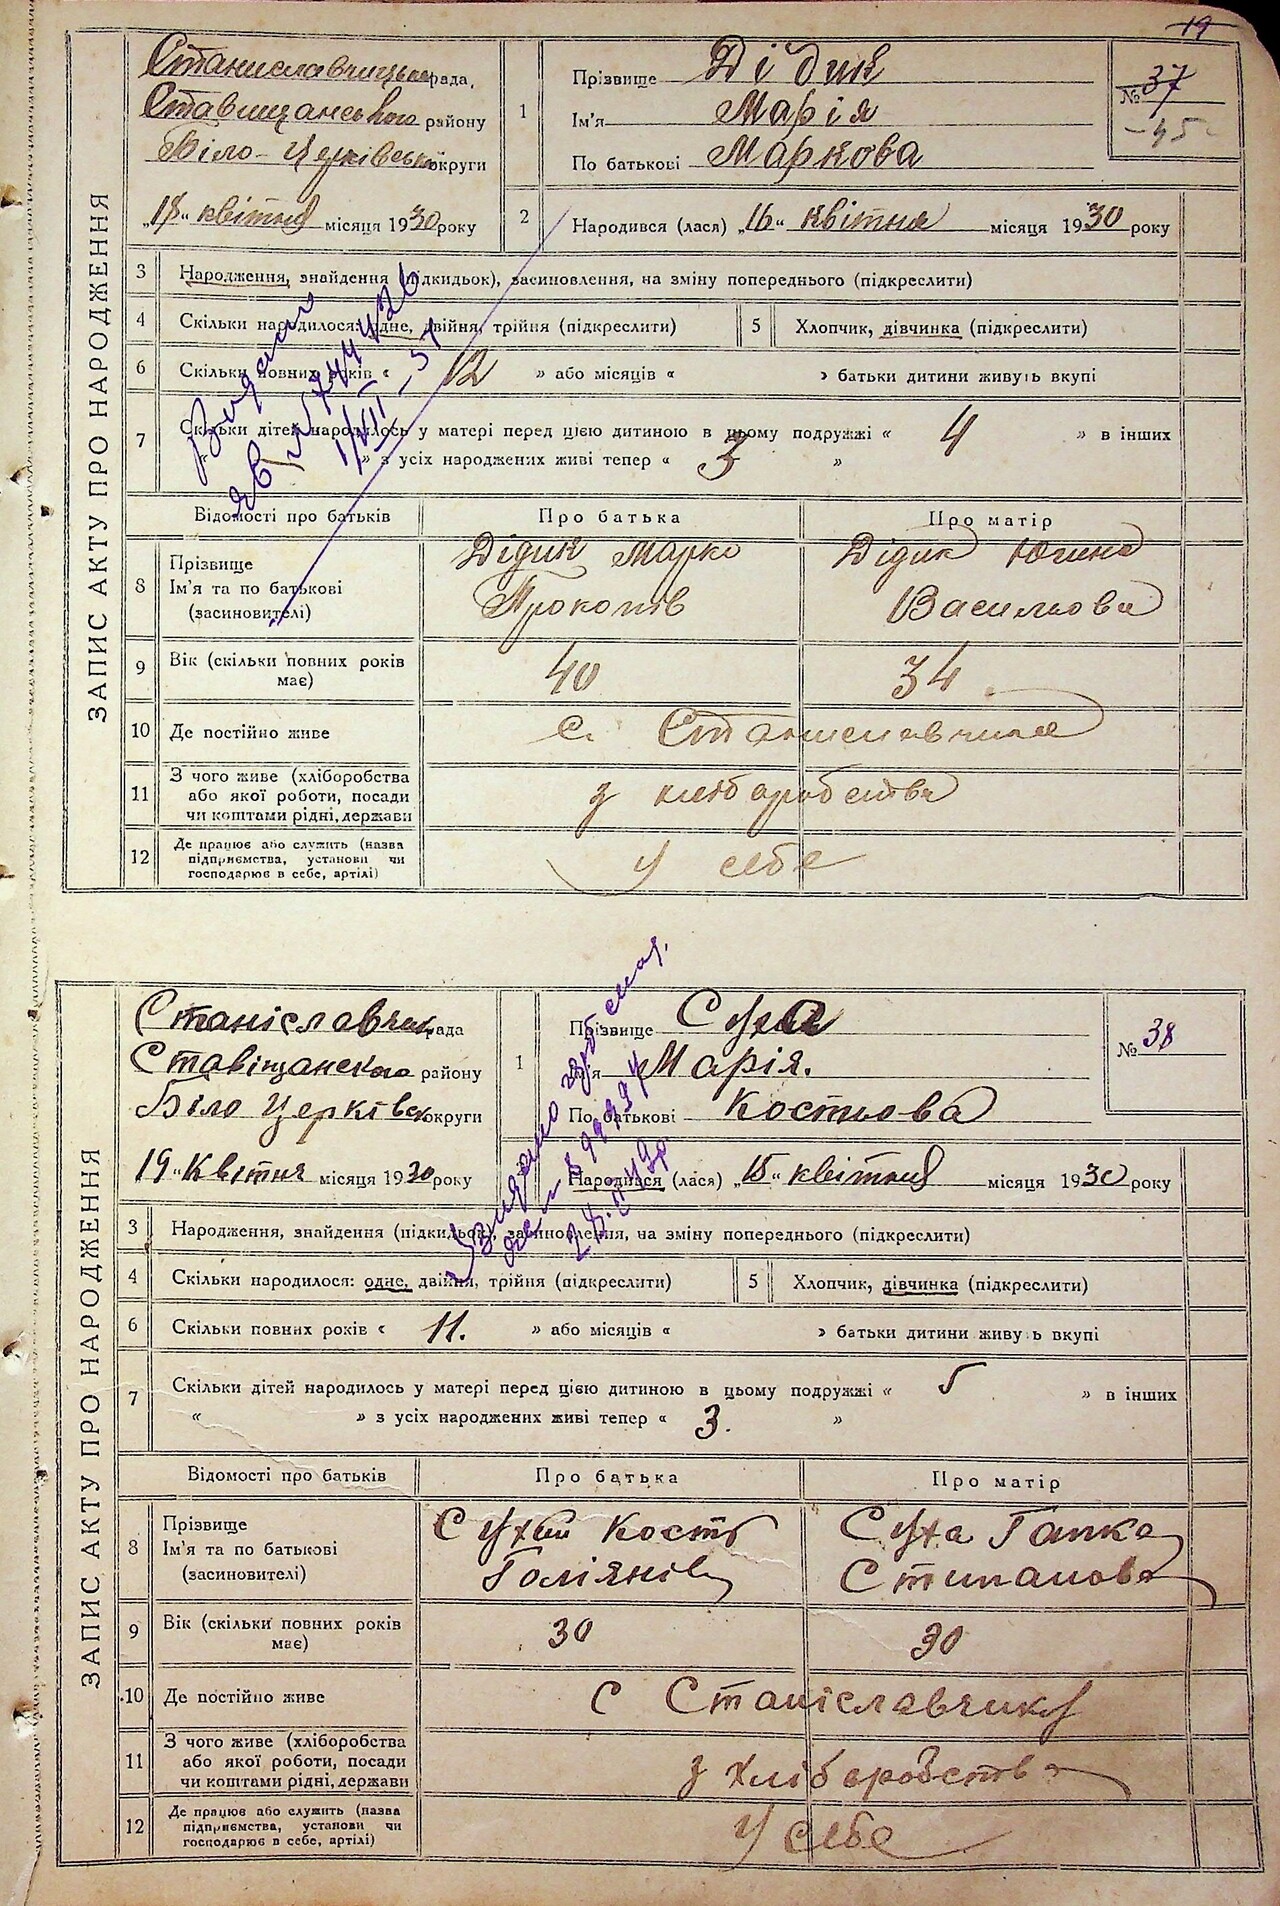 19
ЗАПИС АКТУ ПРО НАРОДЖЕННЯ
Станиславчицька рада,
Ставищанського району
Біло-Церківської округи
„18" квітня місяця 1930 року
1
Прізвище Дідик
Ім'я Марія
По батькові Маркова
№ 37
45
2 Народився (лася) „16" квітня місяця 1930 року
3 Народження, знайдення (підкидьок), засиновлення, на зміну попереднього (підкреслити)
4 Скільки народилося: одне, двійня, трійня (підкреслити) 5 Хлопчик, дівчинка (підкреслити)
6 Скільки повних років « 12 » або місяців « » батьки дитини живуть вкупі
7 Скільки дітей народилось у матері перед цією дитиною в цьому подружжі « 4 » в інших
« » з усіх народжених живі тепер « 3 »
Відомості про батьків Про батька Про матір
8 Прізвище Ім'я та по батькові (засиновителі)
Дідик Марко Прокопів
Дідик Югина Васильова
9 Вік (скільки повних років має) 40 34
10 Де постійно живе с. Станиславчик
11 З чого живе (хліборобства або якої роботи, посади чи коштами рідні, держави з хліборобства
12 Де працює або служить (назва підприємства, установи чи господарює в себе, артілі) у себе
ЗАПИС АКТУ ПРО НАРОДЖЕННЯ
Станіславчик рада
Ставіщанского району
Біло Церківск округи
19 „Квітня місяця 1930 року
1
Прізвище Суха
Ім'я Марія.
По батькові Костьова
№ 38
Народився (лася) „15" квітня місяця 1930 року
3 Народження, знайдення (підкидьок), засиновлення, на зміну попереднього (підкреслити)
4 Скільки народилося: одне, двійня, трійня (підкреслити) 5 Хлопчик, дівчинка (підкреслити)
6 Скільки повних років « 11. » або місяців « » батьки дитини живуть вкупі
7 Скільки дітей народилось у матері перед цією дитиною в цьому подружжі « 5 » в інших
« » з усіх народжених живі тепер « 3. »
Відомості про батьків Про батька Про матір
8 Прізвище Ім'я та по батькові (засиновителі)
Сухий Кость
Суха Гапка Стипанова
9 Вік (скільки повних років має) 30 30
10 Де постійно живе с Станіславчику
11 З чого живе (хліборобства або якої роботи, посади чи коштами рідні, держави з хліборобства
12 Де працює або служить (назва підприємства, установи чи господарює в себе, артілі) У себе